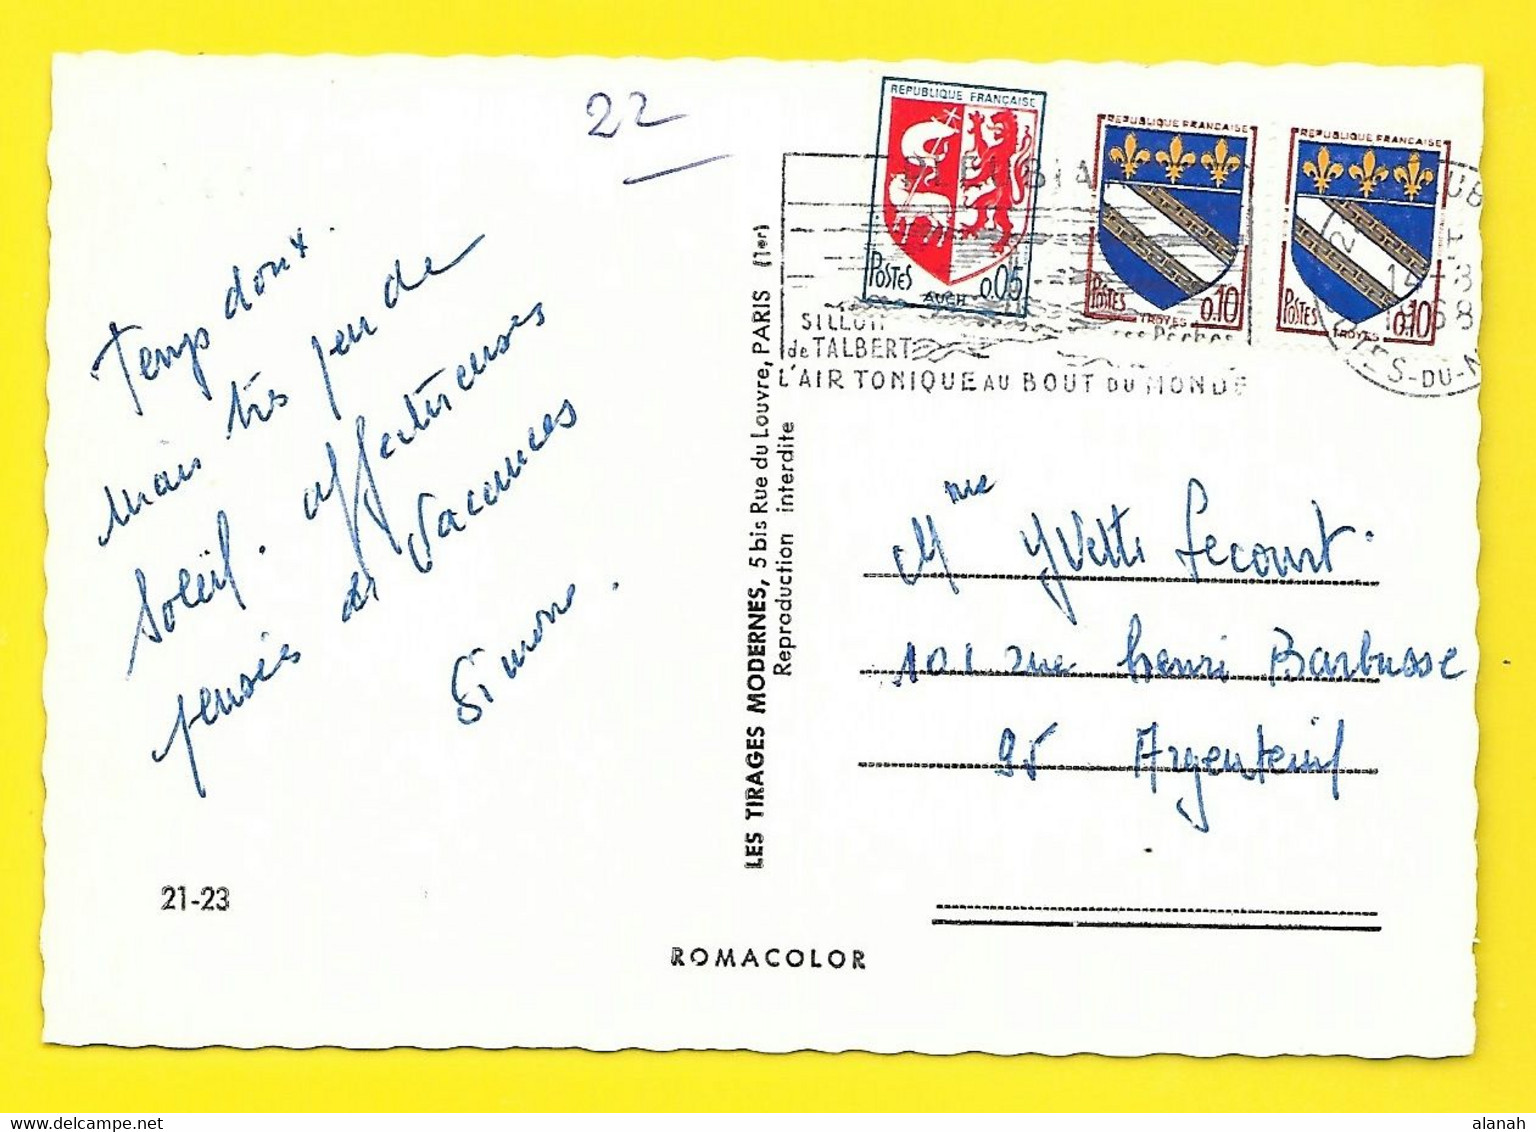 22
Temps doux
mais très peu de
Soleil. affectueuses
pensées de Vacances
Simone.
21-23
ROMACOLOR
LES TIRAGES MODERNES, 5 bis Rue du Louvre, PARIS (1er)
Reproduction interdite
REPUBLIQUE FRANÇAISE
POSTES AUCH 0.05
REPUBLIQUE FRANCAISE
POSTES TROYES 0.10
REPUBLIQUE FRANCAISE
POSTES TROYES 0.10
PLEUBIAN
SILLON
de TALBERT
L'AIR TONIQUE AU BOUT DU MONDE
14-8
1968
CÔTES-DU-N
Mme Yvette Lecourt.
101 rue henri Barbusse
95 Argenteuil
alanah